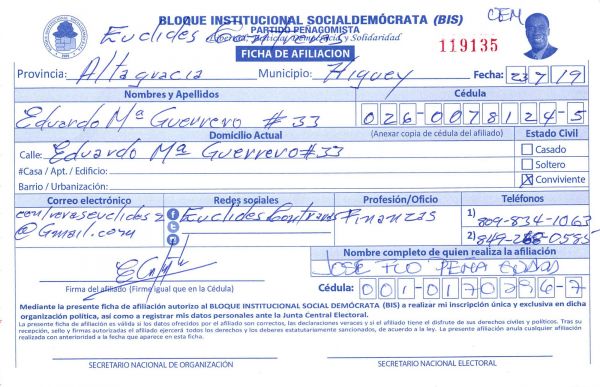 BLOQUE INSTITUCIONAL SOCIALDEMÓCRATA (BIS)
PARTIDO PEÑAGOMISTA
Euclides Contreras
Libertad, Justicia, Democracia y Solidaridad
CEM
FICHA DE AFILIACION
119135
Provincia: Altagracia Municipio: Higuey Fecha: 23 7 /19
Nombres y Apellidos Cédula
Eduardo Mª Guerrero #33 026-0078124-5
Domicilio Actual (Anexar copia de cédula del afiliado) Estado Civil
Calle: Eduardo Mª Guerrero #33 Casado
#Casa / Apt. / Edificio: Soltero
Barrio / Urbanización: X Conviviente
Correo electrónico Redes sociales Profesión/Oficio Teléfonos
contreraseuclides2 Euclides Contreras Finanzas 1) 809-834-1063
@Gmail.com 2) 849-268-0585
Nombre completo de quien realiza la afiliación
JOSE FCO PEÑA
Firma del afiliado (Firme igual que en la Cédula) Cédula: 001-0170286-7
Mediante la presente ficha de afiliación autorizo al BLOQUE INSTITUCIONAL SOCIAL DEMÓCRATA (BIS) a realizar mi inscripción única y exclusiva en dicha
organización política, así como a registrar mis datos personales ante la Junta Central Electoral.
La presente ficha de afiliación es válida si los datos ofrecidos por el afiliado son correctos, las declaraciones veraces y si el afiliado tiene el disfrute de sus derechos civiles y políticos. Tras su
recepción, sello y firmas autorizadas el afiliado ejercerá todos los derechos y los deberes estatutariamente sancionados, de acuerdo a la ley. La presente afiliación anula cualquier afiliación
realizada con anterioridad a la fecha que aparece en esta ficha.
SECRETARIO NACIONAL DE ORGANIZACIÓN SECRETARIO NACIONAL ELECTORAL